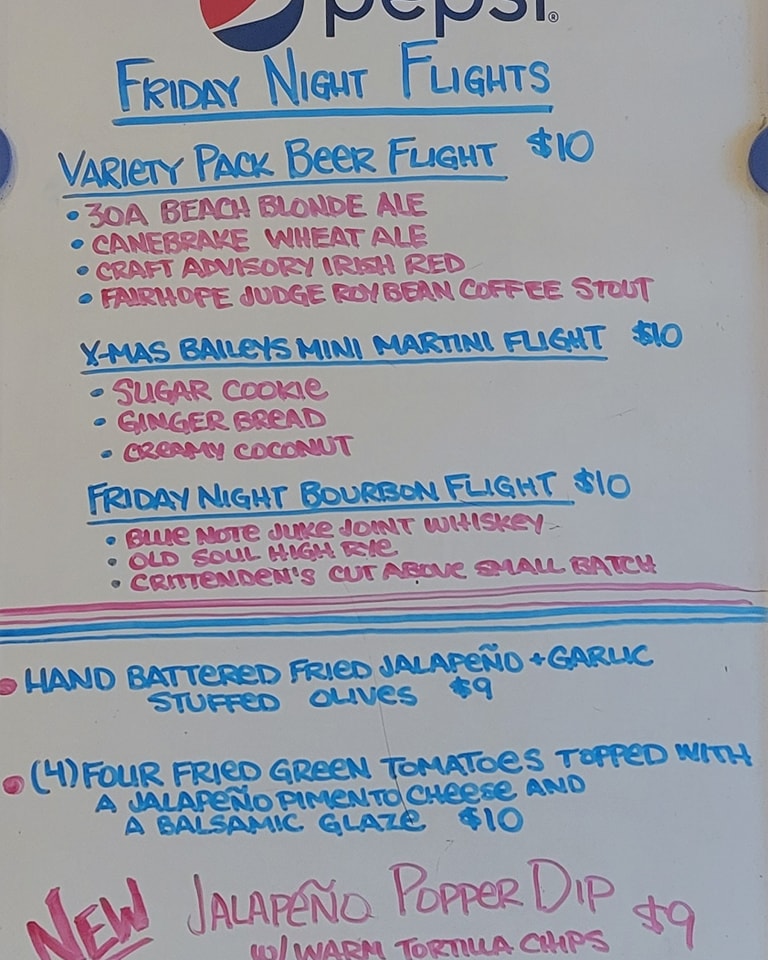 pepsi®
FRIDAY NIGHT FLIGHTS
VARIETY PACK BEER FLIGHT $10
• 30A BEACH BLONDE ALE
• CANEBRAKE WHEAT ALE
• CRAFT ADVISORY IRISH RED
• FAIRHOPE JUDGE ROY BEAN COFFEE STOUT
X-MAS BAILEYS MINI MARTINI FLIGHT $10
• SUGAR COOKIE
• GINGER BREAD
• CREAMY COCONUT
FRIDAY NIGHT BOURBON FLIGHT $10
• BLUE NOTE JUKE JOINT WHISKEY
• OLD SOUL HIGH RYE
• CRITTENDEN'S CUT ABOVE SMALL BATCH
• HAND BATTERED FRIED JALAPEÑO + GARLIC
STUFFED OLIVES $9
• (4) FOUR FRIED GREEN TOMATOES TOPPED WITH
A JALAPEÑO PIMENTO CHEESE AND
A BALSAMIC GLAZE $10
NEW JALAPEÑO POPPER DIP $9
W/ WARM TORTILLA CHIPS